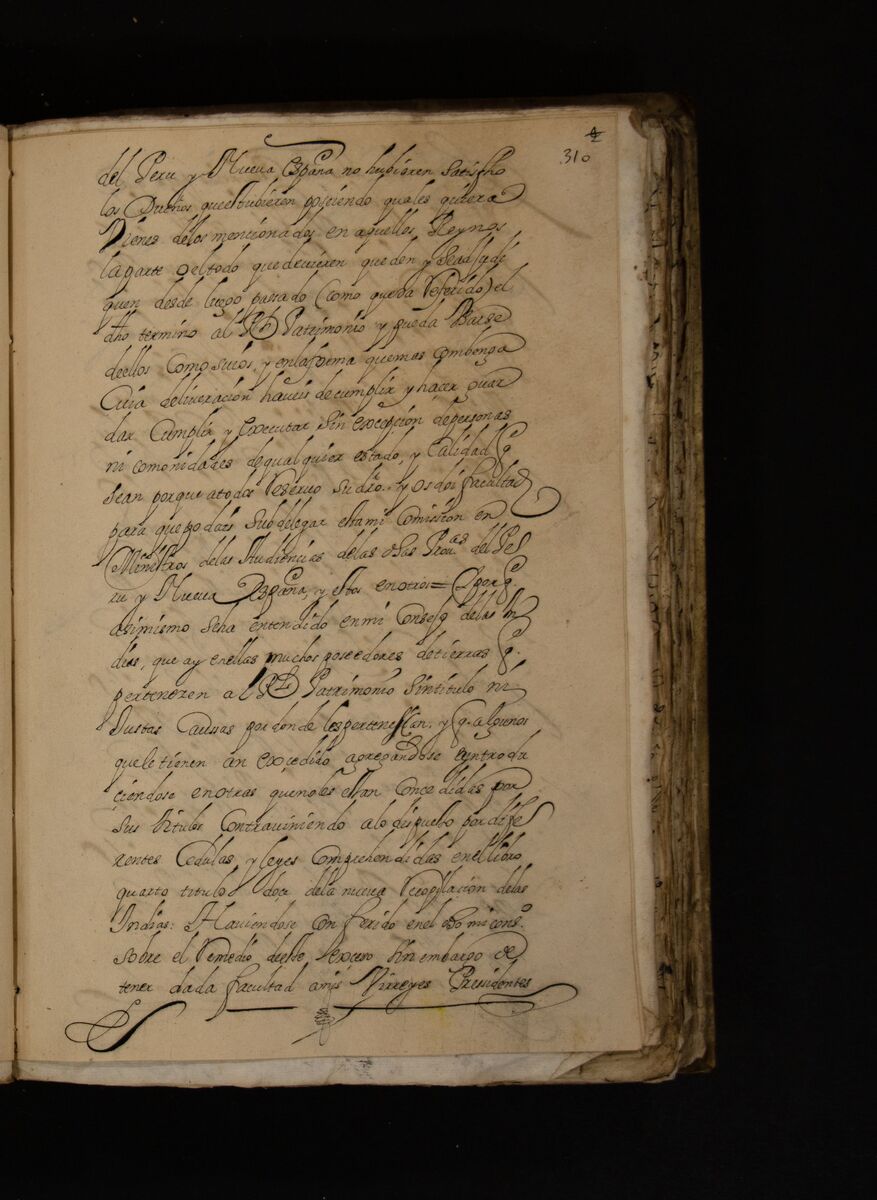 310
del Peru y Nueva españa no hubieren satisfho
los Dueños que estubieren poseiendo quales quiera
Vienes delos mencionados en aquellos Reynos
la parte o el todo que devieren queden y se adjudi
quen desde luego passado (como queda Referido) el
dho termino al Rl Patrimonio y pueda Usarse
de ellos como suios, y en la forma que mas combenga
Cuia deliveracion haveis de cumplir y hacer guar
dar Cumplir y executar sin excepcion de personas
ni comonidades de qualquier estado, y Calidad q
sean porque a todos Reservo su dro. y os doi facultad
para que podais subdelegar esta mi Comission en
Ministros delas Audiencias de las dhas Prouas del Pe
ru y Nueva España, y estos en otros = Y por q.
asimismo se ha entendido en mi Consejo delas In
dias, que ay en ellas muchos poseedores de tierras q.
pertenezen al Rl Patrimonio sin titulo ni
Justas Causas por donde les pertenescan, y q. algunos
que le tienen an excedido agregandose e yntrodu
ciendose en otras que no les estan Concedidas por
sus titulos Contraviniendo a lo dispuesto por dife
rentes Cedulas, y leyes Comprehendidas en el libro
quarto titulo doze dela nueva Recopilacion delas
Indias: Haviendose Conferido en el dho mi conso.
sobre el Remedio de este exceso sin embargo de
tener dada facultad a mis Virreyes Presidentes